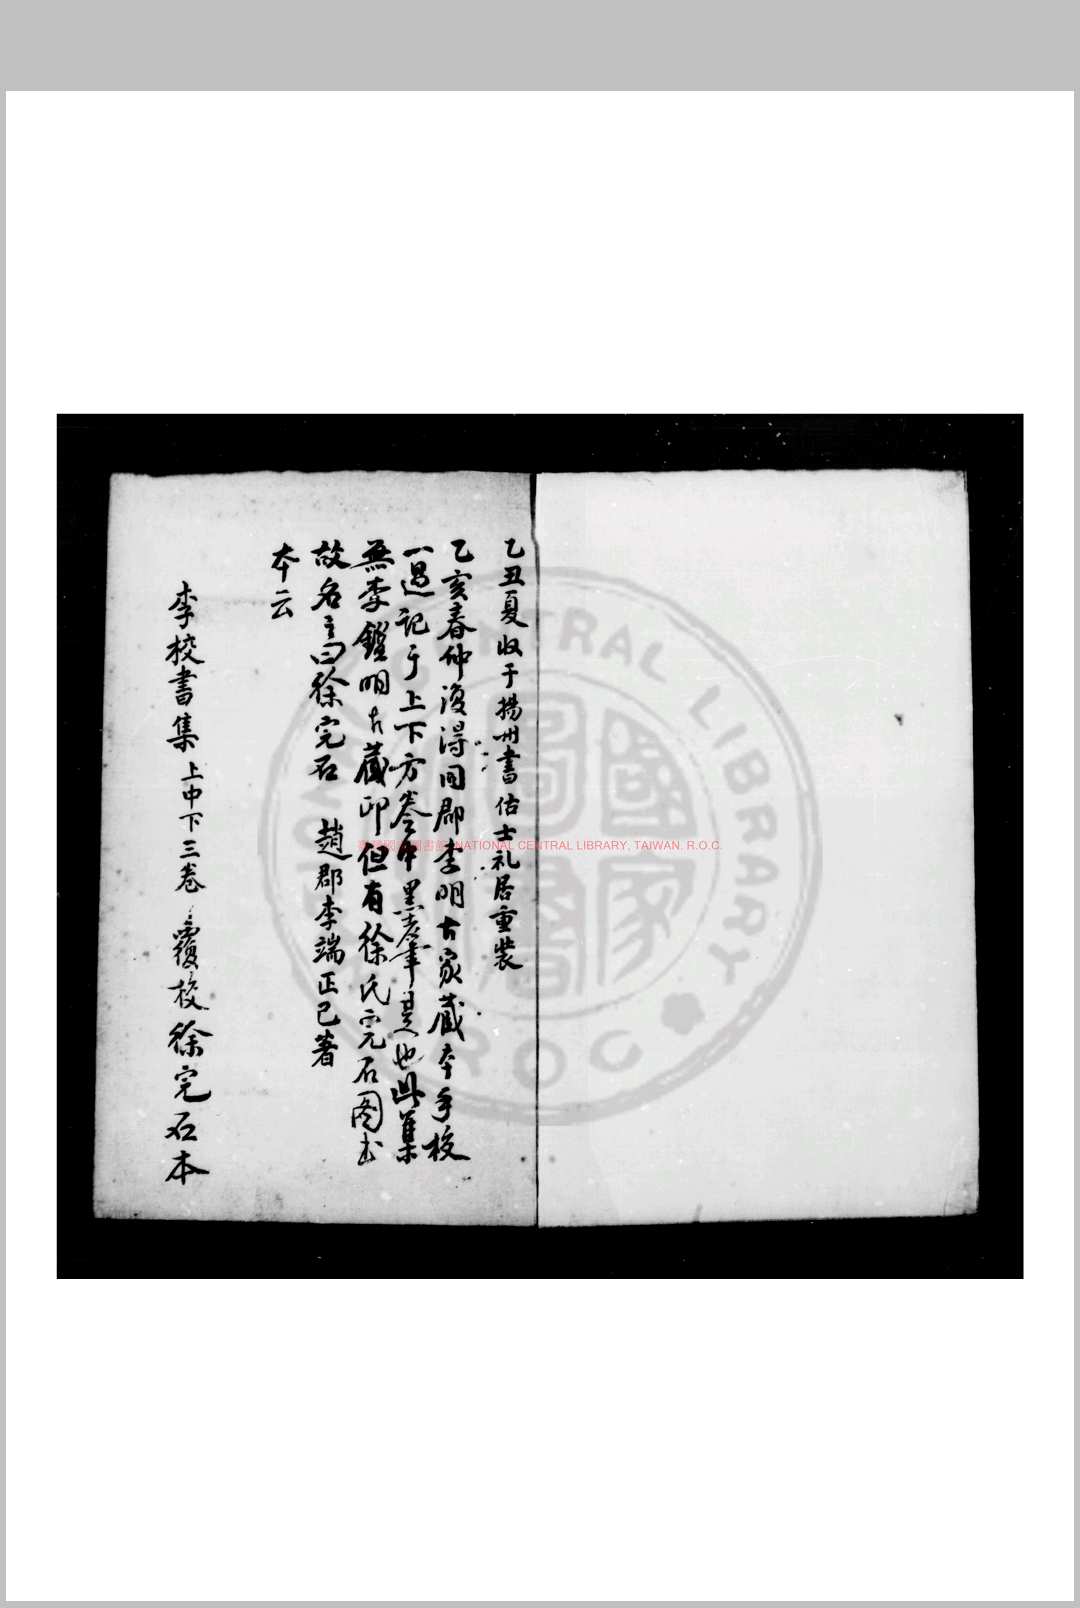 乙丑夏收于揚州書估士礼居重裝
乙亥春仲復得同郡李明古家藏本手校
一過記于上下方卷中黑筆是也此集
無李鑑明古藏印但有徐氏完石圖書
故名之曰徐完石 趙郡李端正已著
本云
李校書集上中下三卷 覆校徐完石本
NATIONAL CENTRAL LIBRARY, TAIWAN. R.O.C.
CENTRAL LIBRARY
ROC